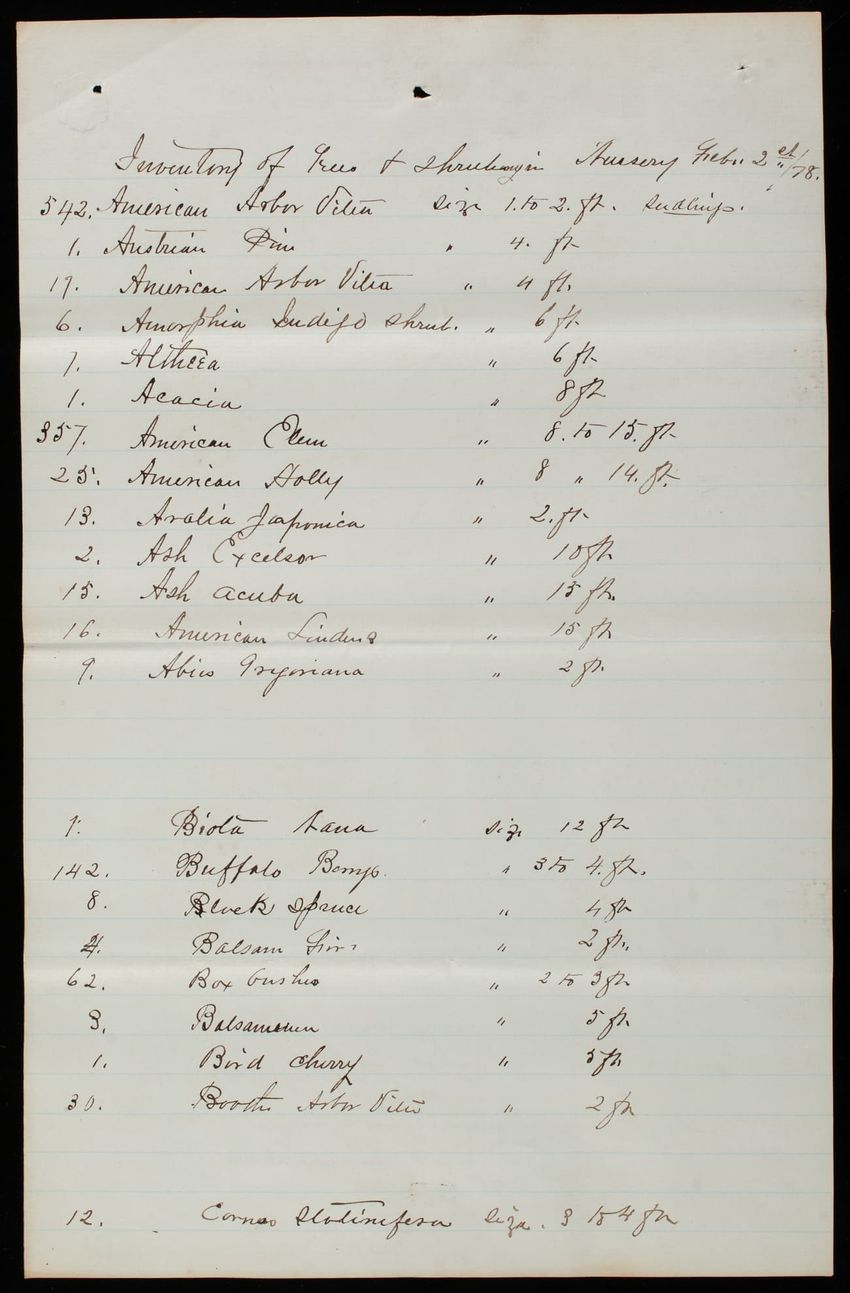 Inventory of Trees & shrubs in Nursery Feb. 2 /78.
542. American Arbor Vitea size 1. to 2. ft. sedlings.
1. Austrian Pine " 4. ft
17. American Arbor Vitea " 4 ft.
6. Amorphia Indigo shrub. " 6 ft
7. Altheea " 6 ft
1. Acacia " 8 ft
357. American Elem " 8. to 15. ft
25. American Holly " 8 " 14. ft.
13. Aralia Japonica " 2. ft
2. Ash Excelsor " 10 ft.
15. Ash acuba " 15 ft.
16. American Lindens " 15 ft
9. Abies Gregoriana " 2 ft.
1. Biota size 12 ft
142. Buffalo Berrys. " 3 to 4. ft.
8. Black spruce " 4 ft
4. Balsam Firs " 2 ft.
62. Box bushes " 2 to 3 ft
3. " 5 ft.
1. Bird cherry " 5 ft.
30. Booths Arbor Vitea " 2 ft
12. Cornus size. 3 to 4 ft